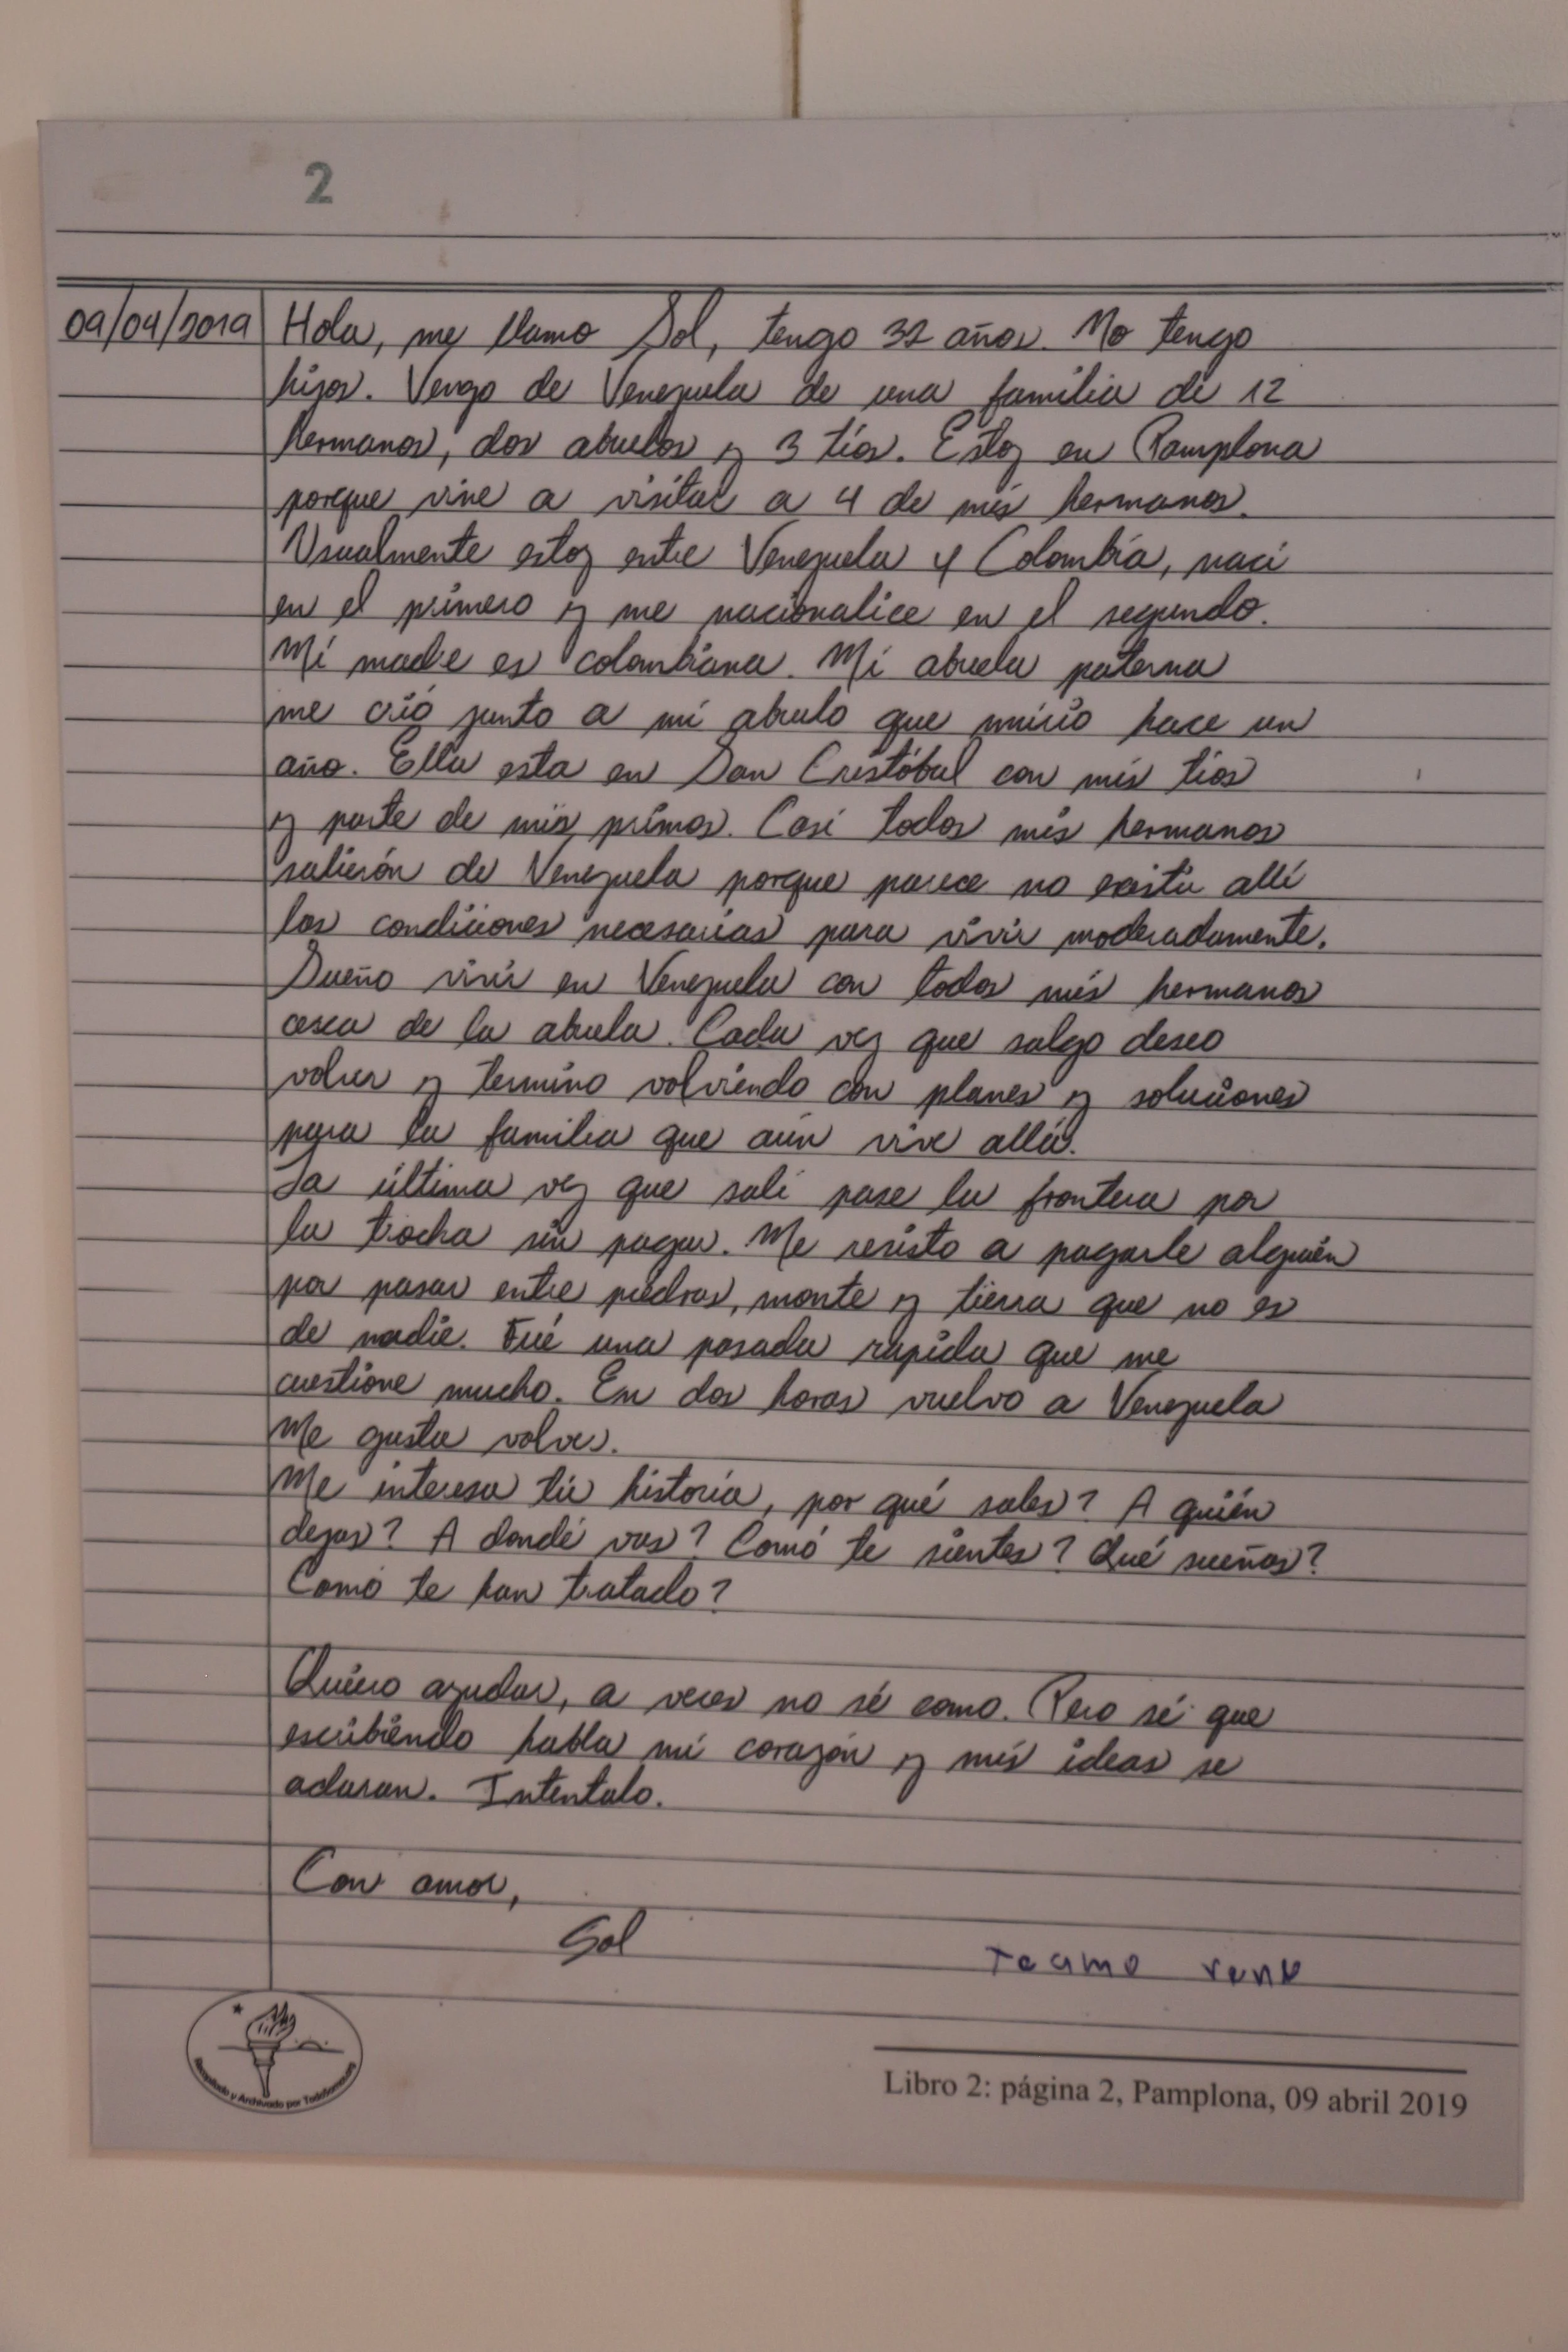 2
09/04/2019 Hola, me llamo Sol, tengo 32 años. No tengo
hijos. Vengo de Venezuela de una familia de 12
hermanos, dos abuelos y 3 tíos. Estoy en Pamplona
porque vine a visitar a 4 de mis hermanos.
Usualmente estoy entre Venezuela y Colombia, naci
en el primero y me nacionalice en el segundo.
Mi madre es colombiana. Mi abuela paterna
me crió junto a mi abuelo que murió hace un
año. Ella esta en San Cristóbal con mis tios
y parte de mis primos. Casi todos mis hermanos
salierón de Venezuela porque parece no existir allí
las condiciones necesarias para vivir moderadamente.
Sueño vivir en Venezuela con todos mis hermanos
cerca de la abuela. Cada vez que salgo deseo
volver y termino volviendo con planes y soluciones
para la familia que aún vive allá.
La última vez que sali pase la frontera por
la trocha sin pagar. Me resisto a pagarle alguién
por pasar entre piedras, monte y tierra que no es
de nadie. Fué una pasada rapida que me
cuestione mucho. En dos horas vuelvo a Venezuela
Me gusta volver.
Me interesa tú historia, por qué sales? A quién
dejas? A dondé vas? Comó te sientes? Qué sueñas?
Comó te han tratado?
Quiero ayudar, a veces no sé como. Pero sé que
escribiendo habla mi corazón y mis ideas se
aclaran. Intentalo.
Con amor,
Sol
Teamo
Recopilado y Archivado por Todosomos
Libro 2: página 2, Pamplona, 09 abril 2019